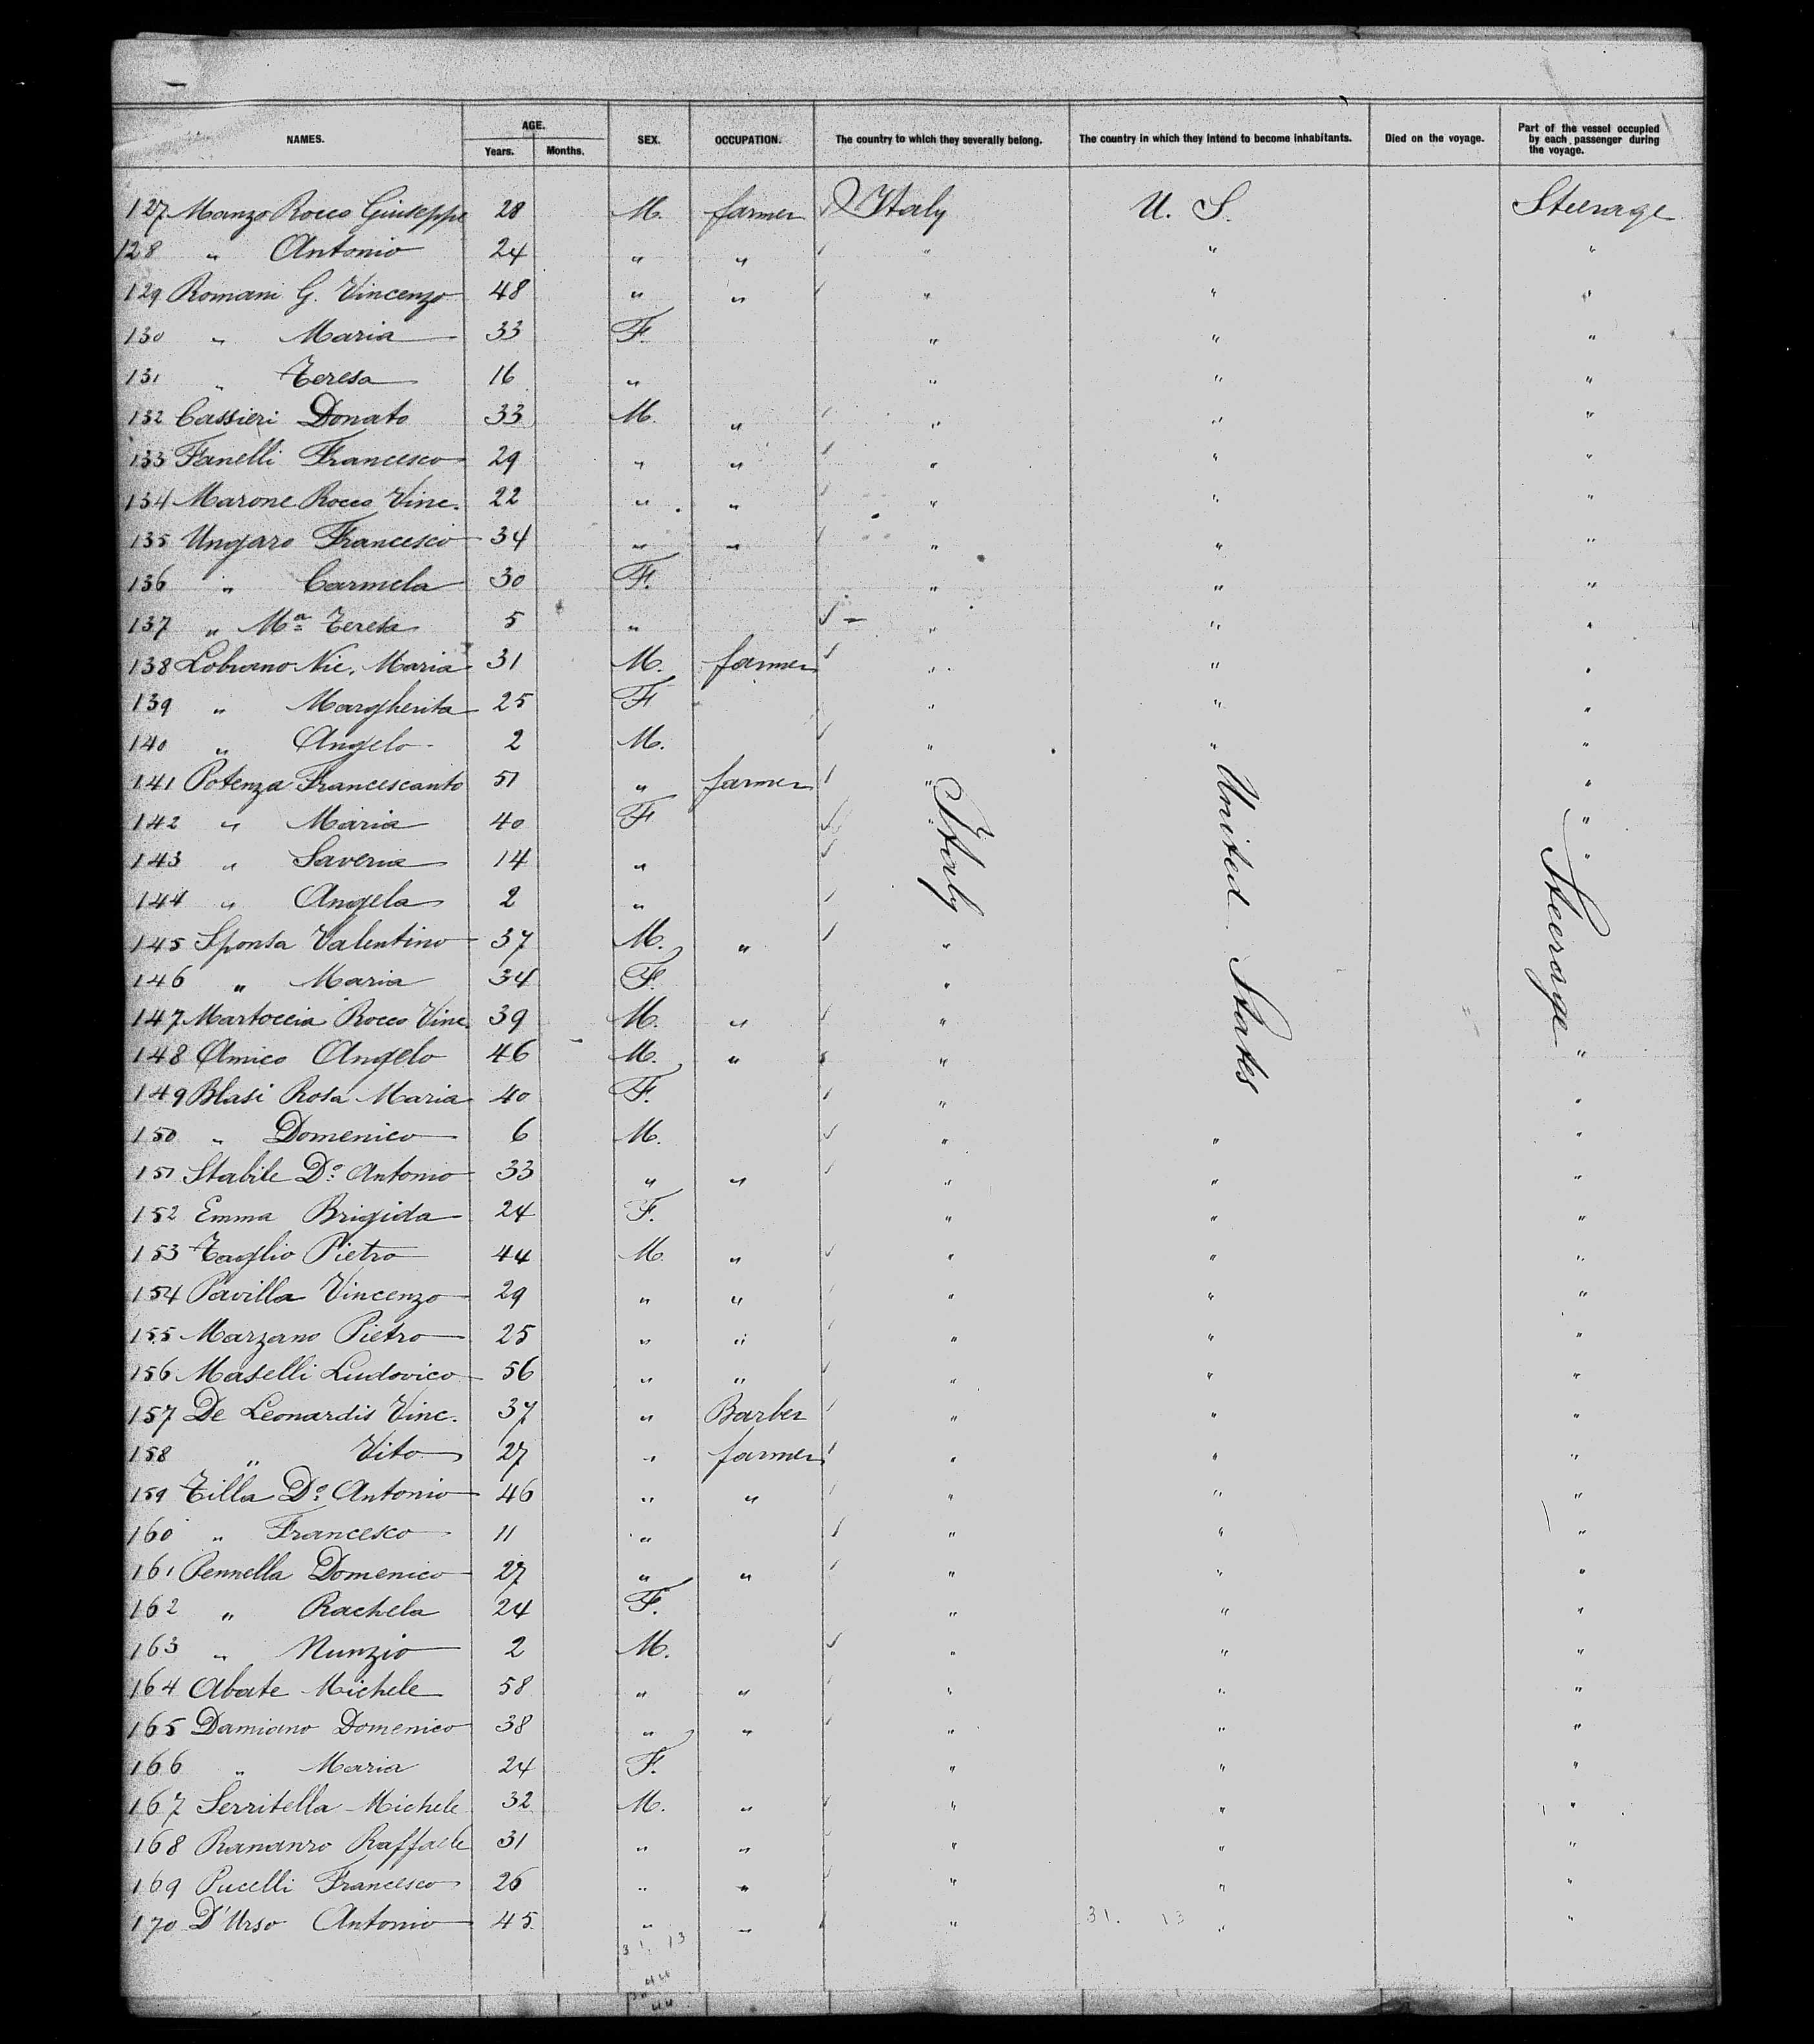 NAMES. AGE. Years. Months. SEX. OCCUPATION. The country to which they severally belong. The country in which they intend to become inhabitants. Died on the voyage. Part of the vessel occupied by each passenger during the voyage.
127 Manzo Rocco Giuseppe 28 M. farmer Italy U. S. Steerage
128 " Antonio 24 " " " " "
129 Romani G. Vincenzo 48 " " " " "
130 " Maria 33 F. " " "
131 " Teresa 16 " " " "
132 Cassieri Donato 33 M. " " " "
133 Fanelli Francesco 29 " " " " "
134 Marone Rocco Vinc. 22 " " " " "
135 Ungaro Francesco 34 " " " " "
136 " Carmela 30 F. " " "
137 " Ma Teresa 5 " " " "
138 Nic. Maria 31 M. farmer " " "
139 " Margherita 25 F " " "
140 " Angelo 2 M. " " "
141 Potenza Francescanto 51 " farmer " United States "
142 " Maria 40 F Italy "
143 " Saveria 14 " " Steerage
144 " Angela 2 "
145 Sponsa Valentino 37 M. " "
146 " Maria 34 F. "
147 Martoccia Rocco Vinc. 39 M. " "
148 Amico Angelo 46 M. " " "
149 Blasi Rosa Maria 40 F. " "
150 " Domenico 6 M. " " "
151 Stabile Do Antonio 33 " " " " "
152 Emma Brigida 24 F. " " "
153 Taglio Pietro 44 M. " " " "
154 Pavilla Vincenzo 29 " " " " "
155 Marzano Pietro 25 " " " " "
156 Maselli Ludovico 56 " " " " "
157 De Leonardis Vinc. 37 " Barber " " "
158 " Vito 27 " farmer " " "
159 Tilla Do Antonio 46 " " " " "
160 " Francesco 11 " " " "
161 Pennella Domenico 27 " " " " "
162 " Rachela 24 F. " " "
163 " Nunzio 2 M. " " "
164 Abate Michele 58 " " " " "
165 Damiano Domenico 38 " " " " "
166 " Maria 24 F. " " "
167 Serritella Michele 32 M. " " " "
168 Raffaele 31 " " " " "
169 Pucelli Francesco 26 " " " " "
170 D'Urso Antonio 45 " " " 31. 13 " "
31. 13
44